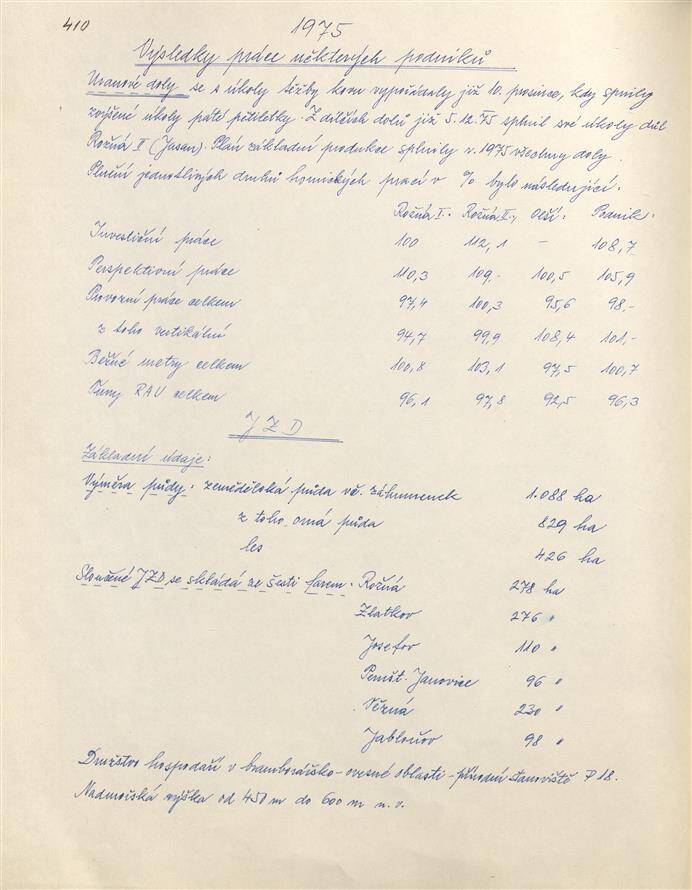 410
1975
Výsledky práce některých podniků
Uranové doly se s úkoly těžby kovu vypořádaly již 10. prosince, kdy splnily
zvýšené úkoly páté pětiletky. Z dílčích dolů již 5.12.75 splnil své úkoly důl
Rožná II (Jasan). Plán základní produkce splnily v r. 1975 všechny doly.
Plnění jednotlivých druhů hornických prací v % bylo následující:
Rožná I. Rožná II., Olší: Podnik:
Investiční práce 100 112,1 - 108,7
Perspektivní práce 110,3 109,- 100,5 105,9
Provozní práce celkem 97,4 100,3 95,6 98,-
z toho vertikální 94,7 99,9 108,4 101,-
Běžné metry celkem 100,8 103,1 97,5 100,7
Tuny RAU celkem 96,1 97,8 92,5 96,3
JZD
Základní údaje:
Výměra půdy: zemědělská půda vč. záhumenek 1.088 ha
z toho orná půda 829 ha
les 426 ha
Sloučené JZD se skládá ze šesti farem: Rožná 278 ha
Zlatkov 276 "
Josefov 110 "
Pernšt. Janovice 96 "
Věžná 230 "
Jabloňov 98 "
Družstvo hospodaří v bramborářsko-ovesné oblasti - přírodní stanoviště P 18.
Nadmořská výška od 450 m do 600 m n. v.